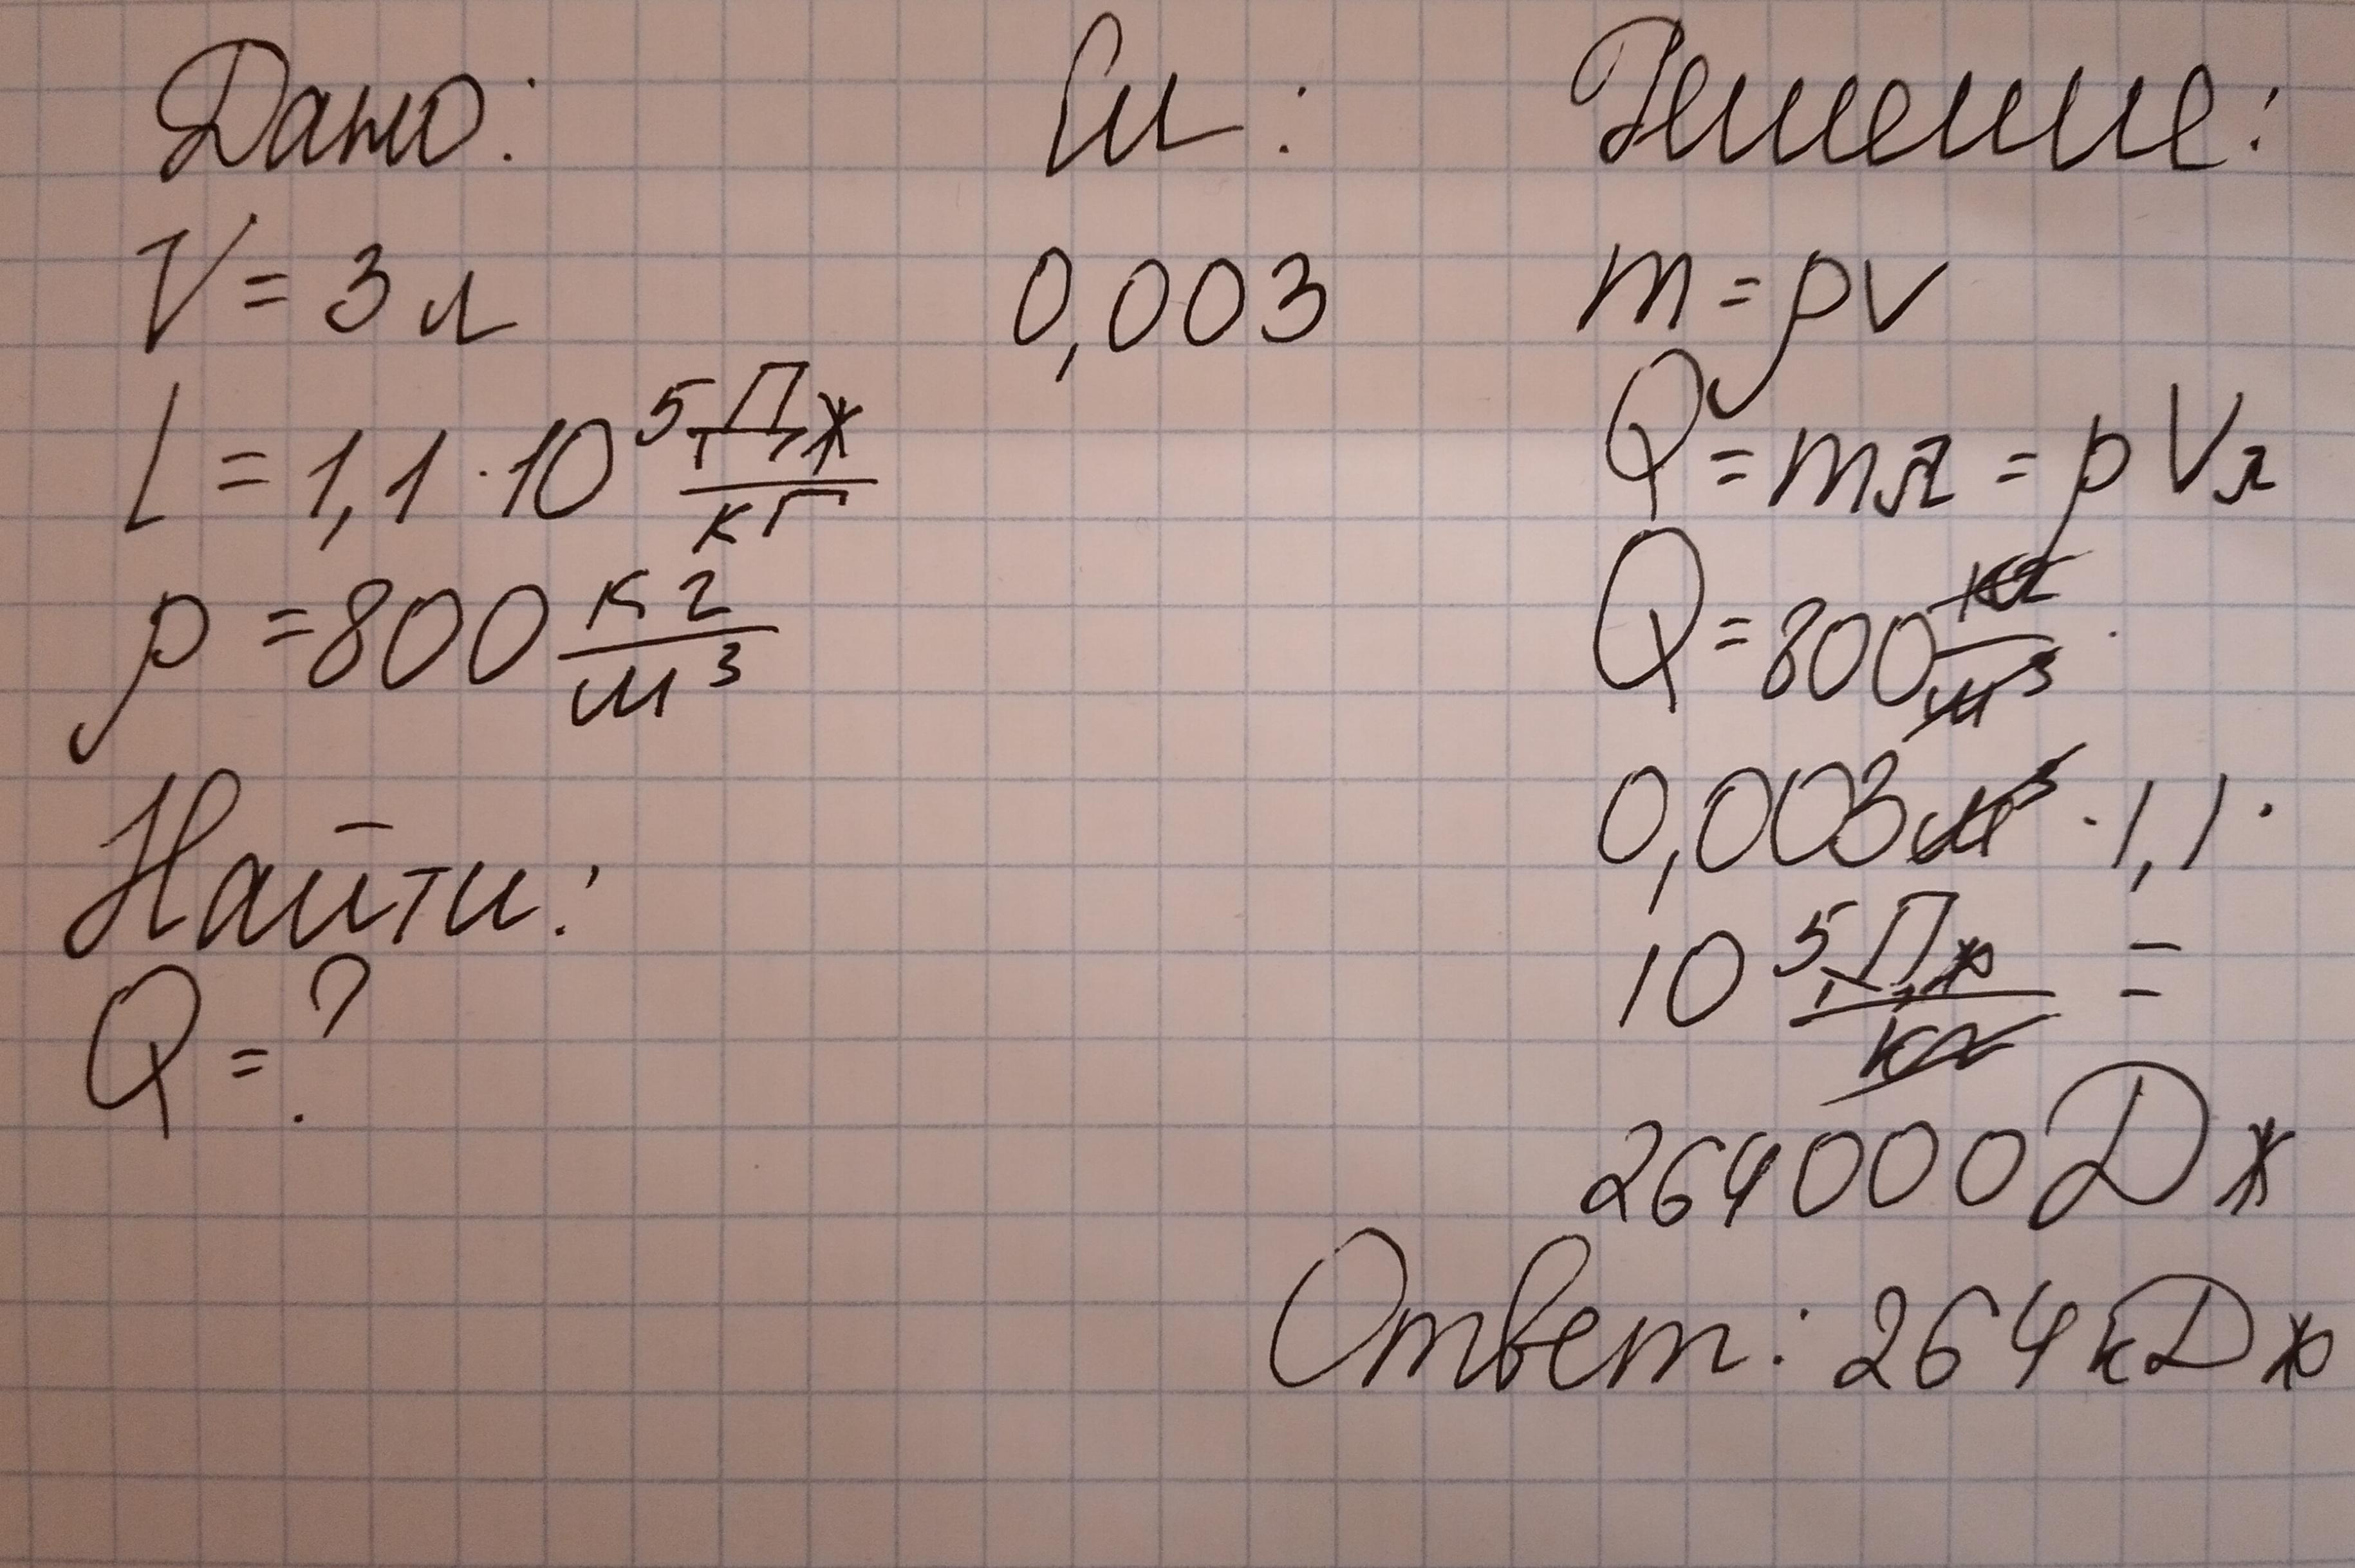 Дано:
V = 3 л
L = 1,1 · 10⁵ Дж/кг
ρ = 800 кг/м³
Найти:
Q = ?
Си:
0,003
Решение:
m = ρV
Q = mл = ρVл
Q = 800 кг/м³ ·
0,003 м³ · 1,1 ·
10⁵ Дж/кг =
264000 Дж
Ответ: 264 кДж